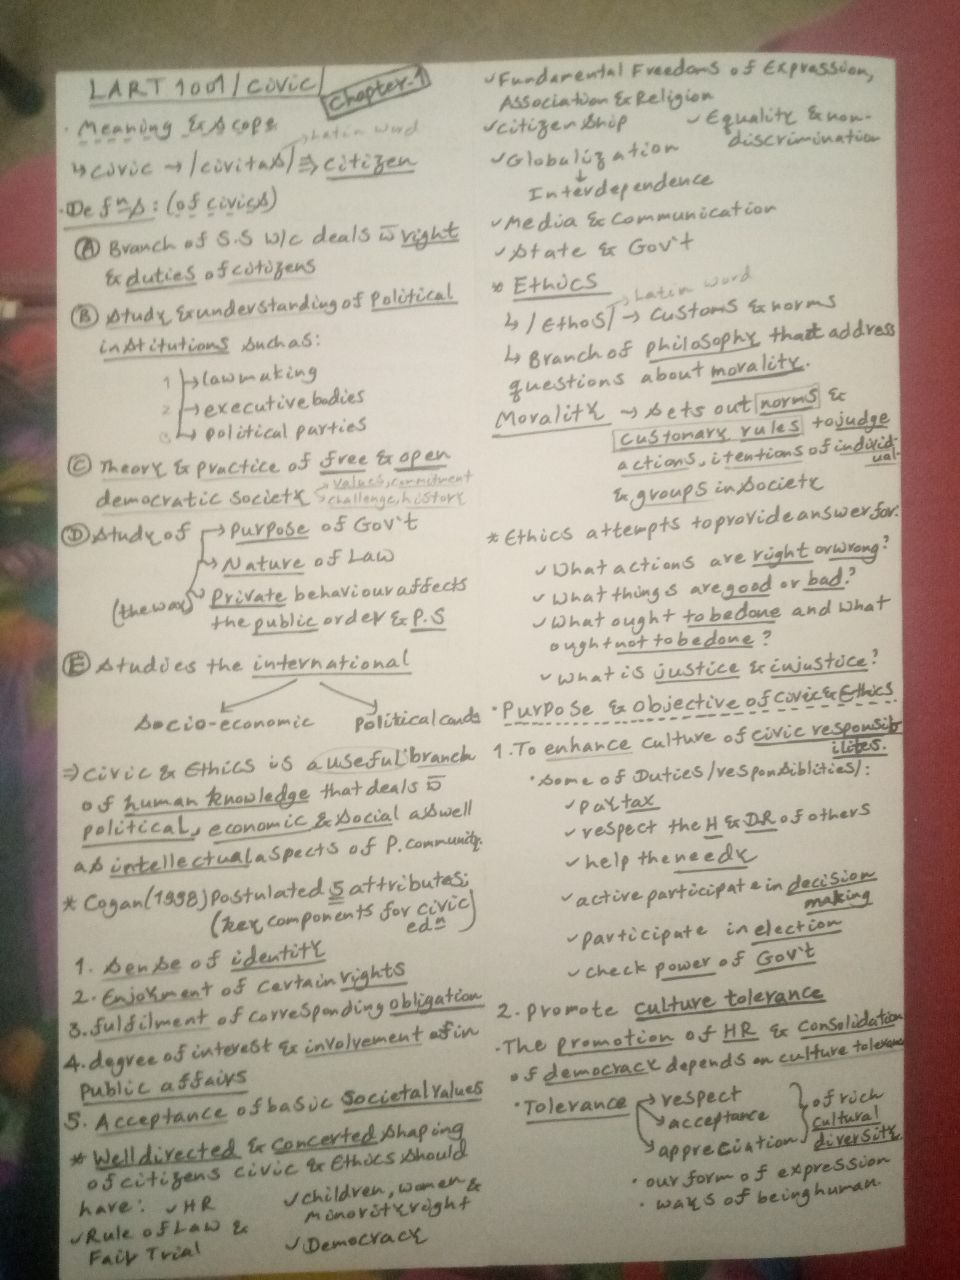 LART 1001/civic/
Chapter-1
· Meaning & Scope
Latin word
↳ civic → /civitas/ ⇒ citizen
· Defns: (of civics)
Ⓐ Branch of S.S w/c deals w̅ right
& duties of citizens
Ⓑ Study & understanding of political
institutions such as:
1 → lawmaking
2 → executive bodies
3 → political parties
Ⓒ Theory & practice of free & open
democratic society → values, commitment
challenge, history
Ⓓ Study of → purpose of Gov't
→ Nature of Law
(the way) Private behaviour affects
the public order & P.S
Ⓔ Studies the international
Socio-economic political
⇒ civic & Ethics is a useful branch
of human knowledge that deals w̅
political, economic & social aswell
as intellectual aspects of P. community.
* Cogan(1998) postulated 5 attributes;
(key components for civic
edn)
1. Sense of identity
2. Enjoyment of certain rights
3. fulfilment of corresponding obligation
4. degree of interest & involvement of in
Public affairs
5. Acceptance of basic societal values
* Well directed & concerted shaping
of citizens civic & Ethics should
have: ✓ HR
✓ Rule of Law &
Fair Trial
✓ children, women &
Minority right
✓ Democracy
✓ Fundamental Freedoms of Expression,
Association & Religion
✓ citizenship
✓ Equality & non-
discrimination
✓ Globalization
↓
Interdependence
✓ Media & Communication
✓ State & Gov't
* Ethics
Latin word
↳ /Ethos/ → customs & norms
↳ Branch of philosophy that address
questions about morality.
Morality → Sets out norms &
customary rules to judge
actions, itentions of individ
ual-
& groups in society
* Ethics attempts to provide answer for:
✓ What actions are right or wrong?
✓ What things are good or bad?
✓ What ought to be done and what
ought not to be done?
✓ what is justice & injustice?
· Purpose & objective of civic & Ethics
1. To enhance culture of civic responsib
ilites.
· Some of Duties/responsiblities/:
✓ pay tax
✓ respect the H & DR of others
✓ help the needy
✓ active participate in decision
making
✓ participate in election
✓ check power of Gov't
2. promote culture tolerance
· The promotion of HR & consolidation
of democracy depends on culture tolerance
· Tolerance → respect
→ acceptance
→ appreciation
of rich
cultural
diversity.
· our form of expression
· ways of being human.